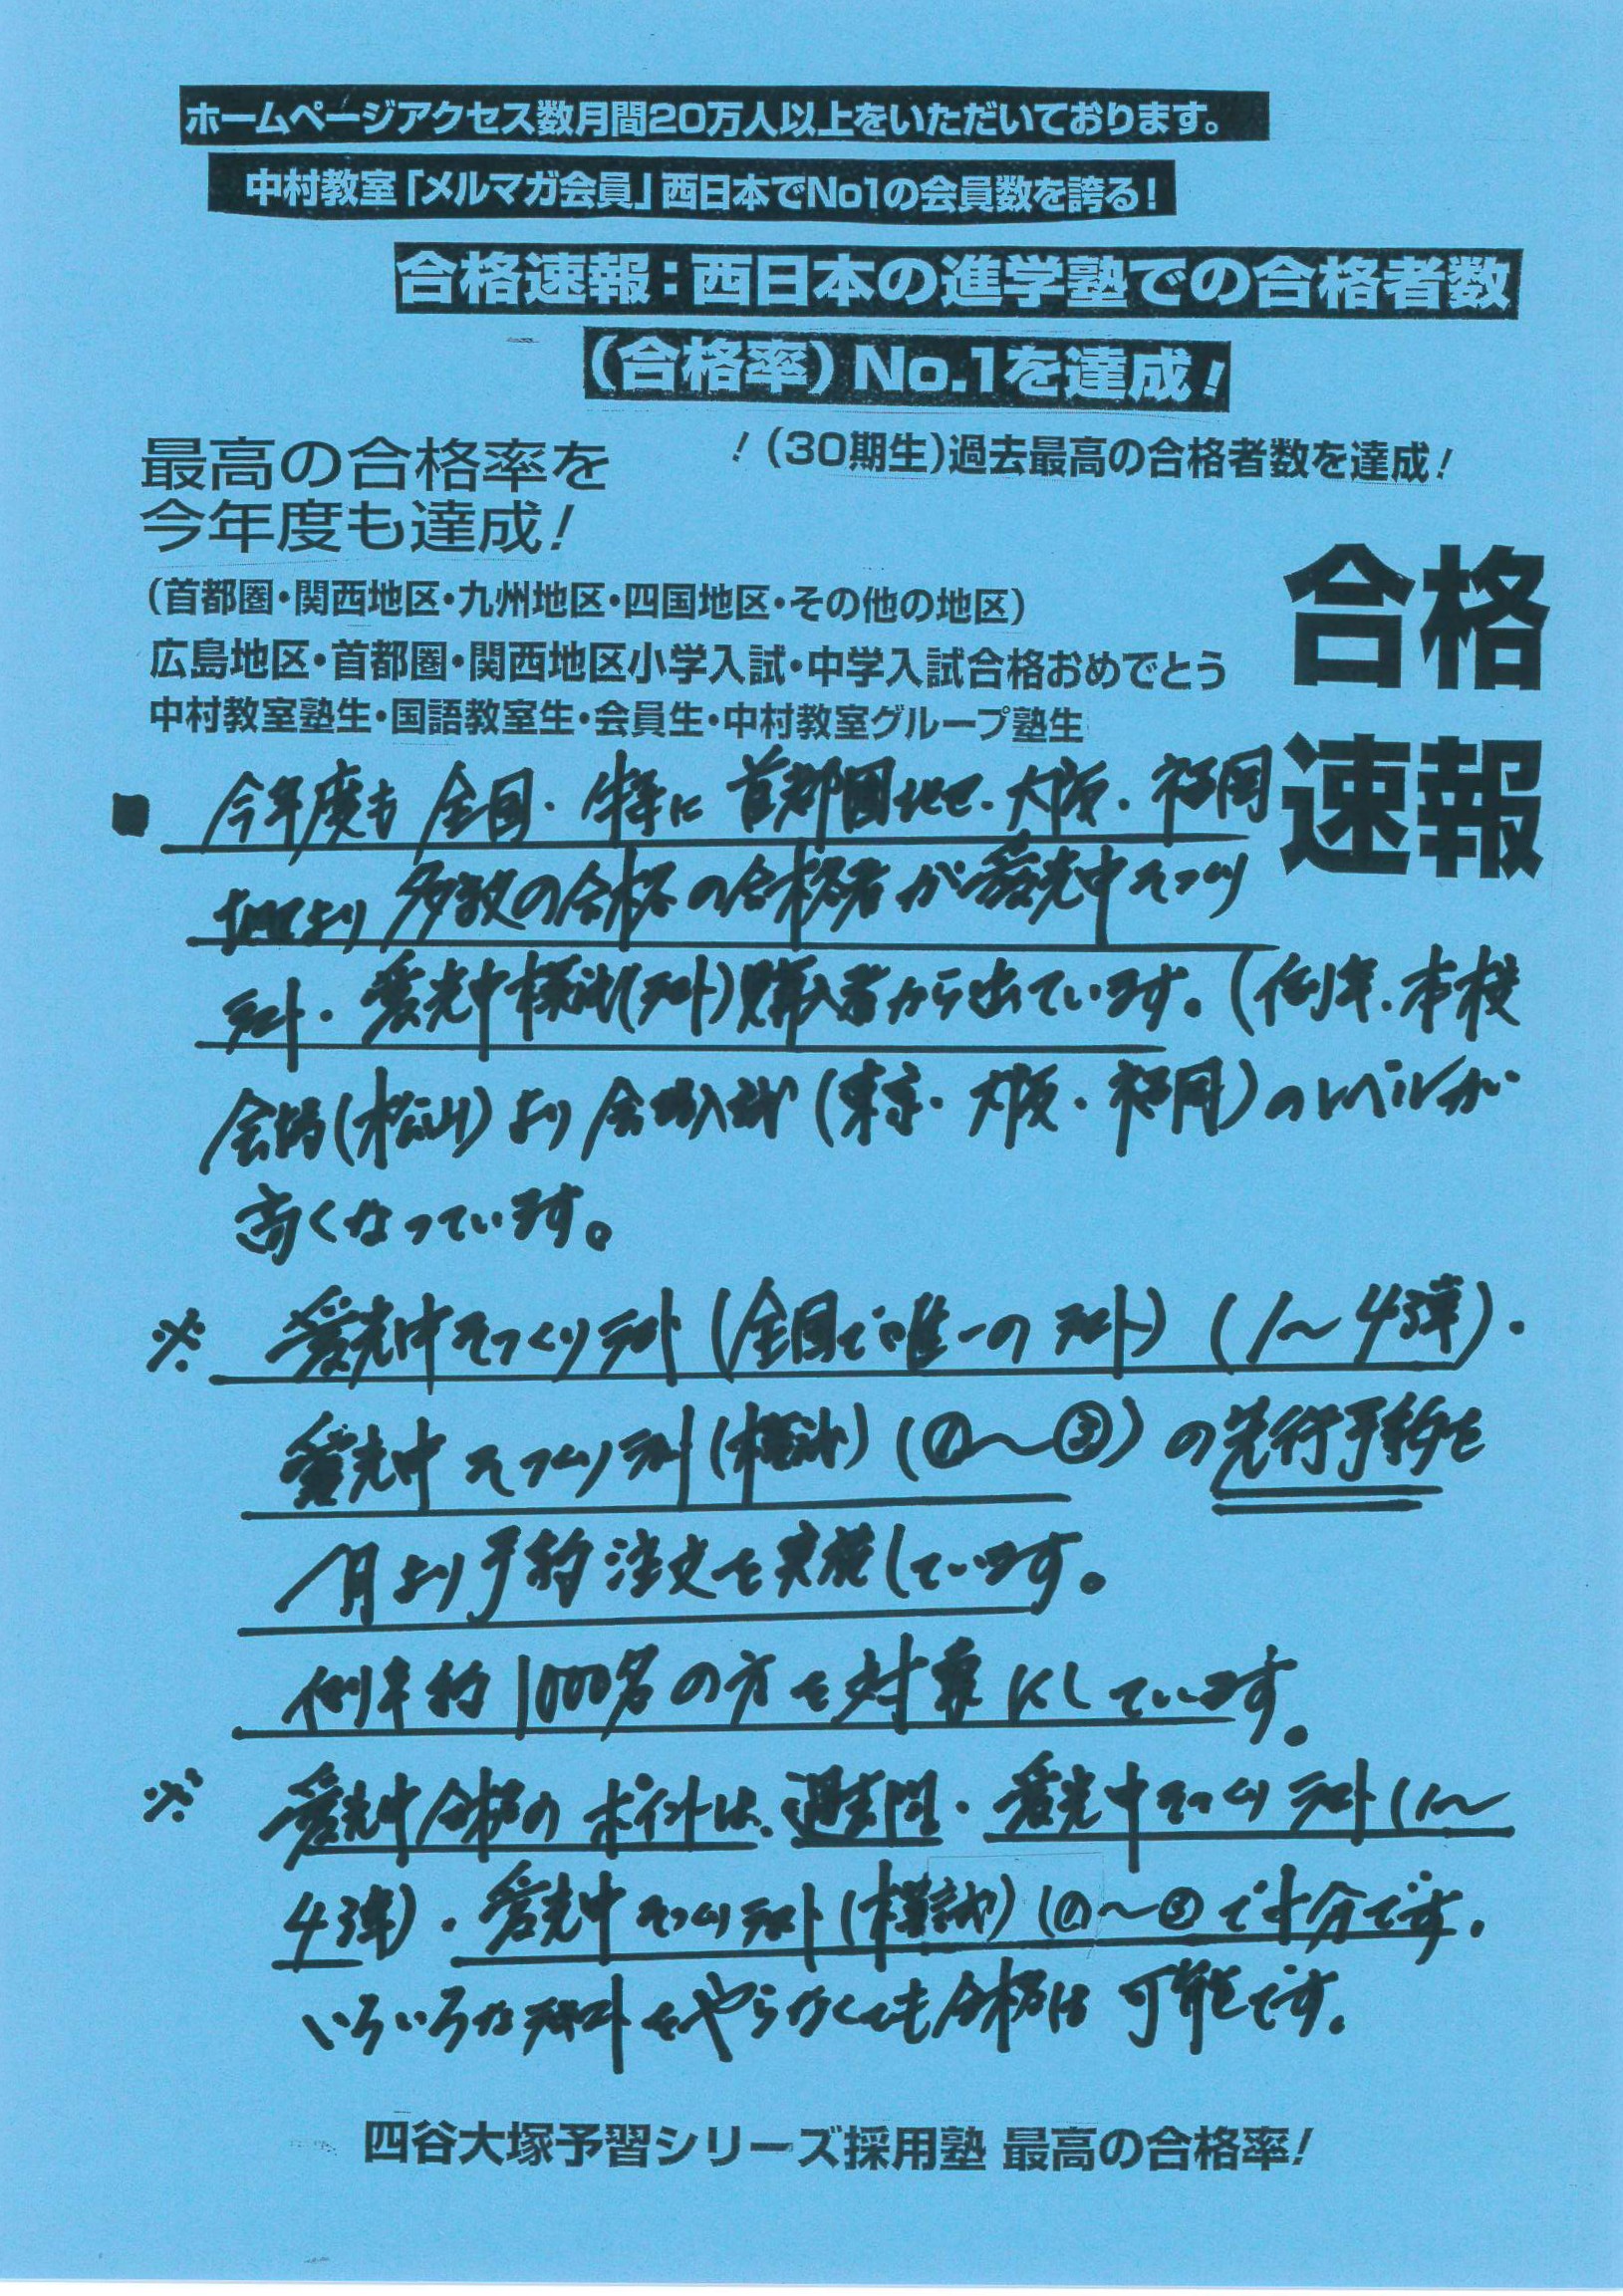 ホームページアクセス数月間20万人以上をいただいております。
中村教室「メルマガ会員」西日本でNo1の会員数を誇る!
合格速報:西日本の進学塾での合格者数
(合格率)No.1を達成!
最高の合格率を
今年度も達成!
!(30期生)過去最高の合格者数を達成!
(首都圏・関西地区・九州地区・四国地区・その他の地区)
広島地区・首都圏・関西地区小学入試・中学入試合格おめでとう
中村教室塾生・国語教室生・会員生・中村教室グループ塾生
合格
速報
■ 今年度も全国・特に首都圏地区・大阪・福岡
地区より多数の合格の合格者が愛光中そっくり
テスト・愛光中模試(テスト)購入者から出ています。(例年、本校
会場(松山)より会場入試(東京・大阪・福岡)のレベルが
高くなっています。
※ 愛光中そっくりテスト(全国で唯一のテスト)(1〜4弾)・
愛光中そっくりテスト(模試)(①〜③)の先行予約を
1月より予約注文を実施しています。
例年約1000名の方を対象にしています。
※ 愛光中合格のポイントは、過去問・愛光中そっくりテスト(1〜
4弾)・愛光中そっくりテスト(模試)(①〜③で十分です。
いろいろなテキストをやらなくても合格は可能です。
四谷大塚予習シリーズ採用塾 最高の合格率!